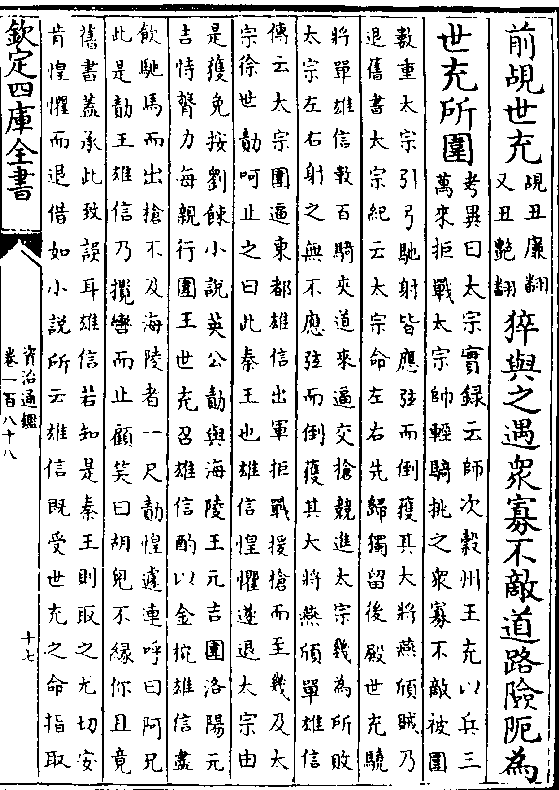 前覘世充
覘丑廉翻
又丑艷翻
猝與之遇衆寡不敵道路險阨為
世充所圍
考異曰太宗實録云師次榖州王充以兵三
萬來拒戰太宗帥輕騎挑之衆寡不敵被圍
數重太宗引弓馳射皆應弦而倒獲其大將燕頎賊乃
退舊書太宗紀云太宗命左右先歸獨留後殿世充驍
將單雄信數百騎夾道來逼交搶競進太宗幾為所敗
太宗左右射之無不應弦而倒獲其大將燕頎單雄信
傳云太宗圍逼東都雄信出軍拒戰援搶而至幾及太
宗徐世勣呵止之曰此秦王也雄信惶懼遂退太宗由
是獲免按劉餗小説英公勣與海陵王元吉圍洛陽元
吉恃膂力每親行圍王世充召雄信酌以金椀雄信盡
飲馳馬而出搶不及海陵者一尺勣惶遽連呼曰阿兄
此是勣王雄信乃攬轡而止顧笑曰胡兒不縁你且竟
舊書蓋承此致誤耳雄信若知是秦王則取之尤切安
肯惶懼而退借如小説所云雄信既受世充之命指取
欽定四庫全書
資治通鑑
卷一百八十八
十七